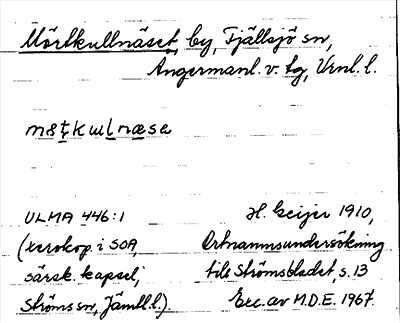 Mörtkullnäset, by, Fjällsjö sn,
Ångermanl. v. tg, Vrnl. l.
ULMA 446:1
H. Geijer 1910,
(xerokop. i SOA,
Ortnamnsundersökning
särsk. kapsel;
till Strömsbladet, s. 13
Ströms sn, Jämtl. l.).
Exc. av M.D.E. 1967.